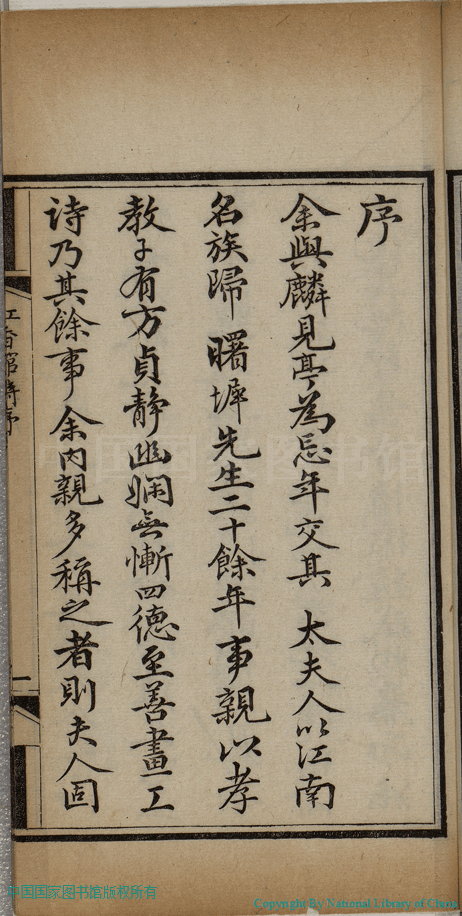 序
余與麟見亭為忘年交其 太夫人以江南
名族歸 曙墀先生二十餘年事親以孝
教子有方貞静幽嫻無慚四德至善畫工
詩乃其餘事余内親多稱之者則夫人固
紅香館詩序
一
中国国家图书馆
中国国家图书馆版权所有
Copyright By National Library of China